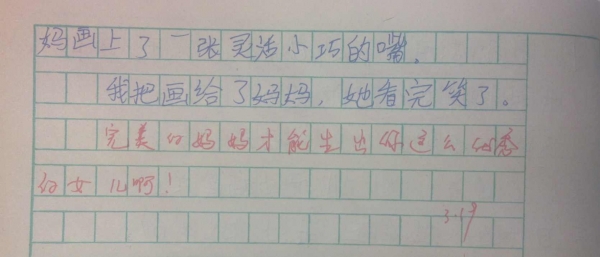 妈画上了一张灵活小巧的嘴。
我把画给了妈妈，她看完笑了。
完美的妈妈才能生出你这么优秀
的女儿啊！
3.19